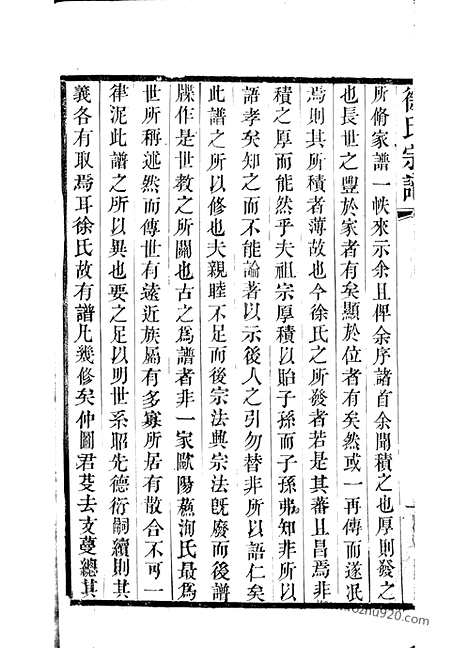 徐氏宗譜
所脩家譜一帙來示余且俾余序諸首余聞積之也厚則發之
也長世之豐於家者有矣顯於位者有矣然或一再傳而遂泯
焉則其所積者薄故也今徐氏之所發者若是其蕃且昌焉非
積之厚而能然乎夫祖宗厚積以貽子孫而子孫弗知非所以
語孝矣知之而不能論著以示後人之引勿替非所以語仁矣
此譜之所以修也夫親睦不足而後宗法興宗法旣廢而後譜
牒作是世教之所關也古之為譜者非一家歐陽蘇洵氏最為
世所稱述然而傳世有遠近族屬有多寡所居有散合不可一
律泥此譜之所以異也要之足以明世系昭先德衍嗣續則其
義各有取焉耳徐氏故有譜凡幾修矣仲圖君芟去支蔓總其